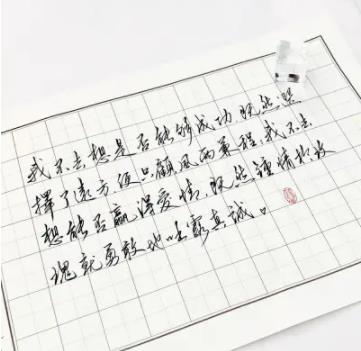 我不去想是否能够成功，既然选
择了远方便只顾风雨兼程，我不去
想能否赢得爱情，既然钟情于玫
瑰就勇敢地吐露真诚。